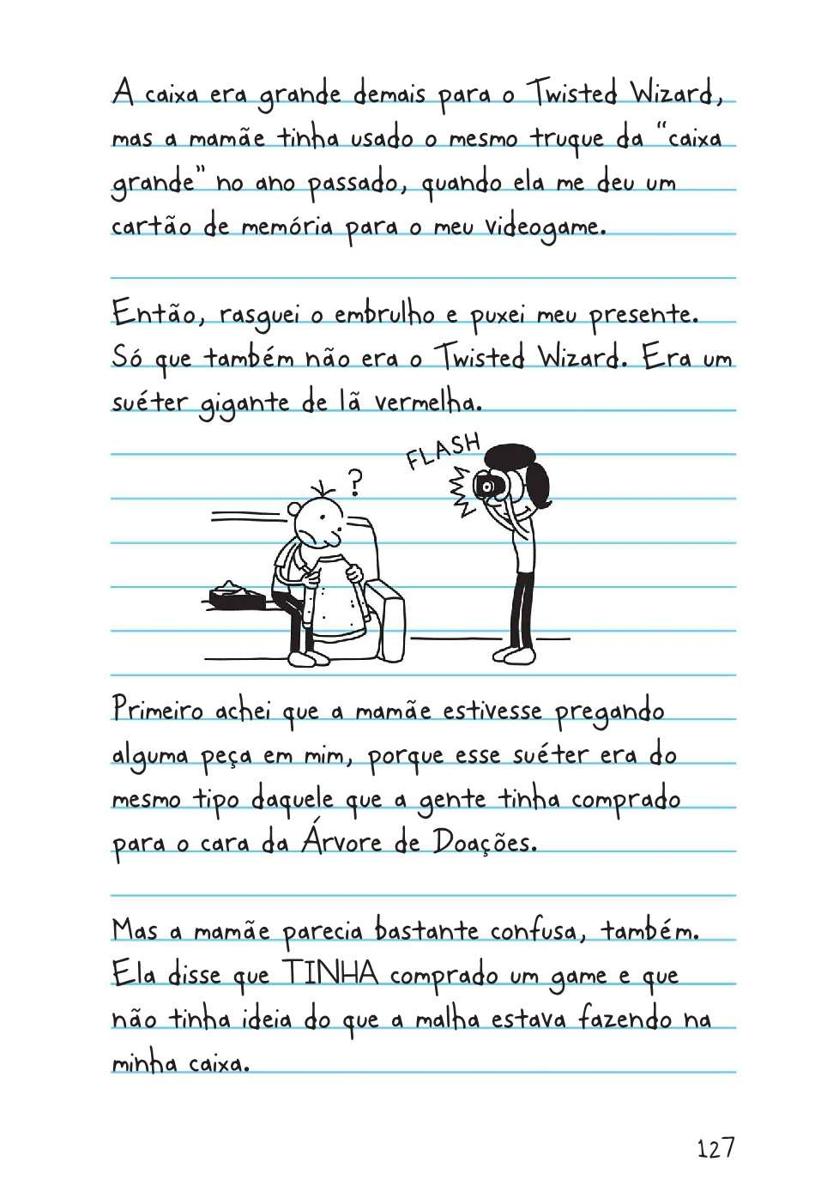 A caixa era grande demais para o Twisted Wizard,
mas a mamãe tinha usado o mesmo truque da “caixa
grande” no ano passado, quando ela me deu um
cartão de memória para o meu videogame.
Então, rasguei o embrulho e puxei meu presente.
Só que também não era o Twisted Wizard. Era um
suéter gigante de lã vermelha.
FLASH
?
Primeiro achei que a mamãe estivesse pregando
alguma peça em mim, porque esse suéter era do
mesmo tipo daquele que a gente tinha comprado
para o cara da Árvore de Doações.
Mas a mamãe parecia bastante confusa, também.
Ela disse que TINHA comprado um game e que
não tinha ideia do que a malha estava fazendo na
minha caixa.
127